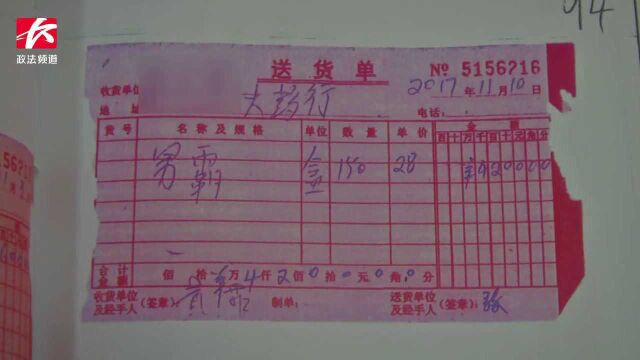 94
政法频道
送货单 No 5156216
收货单位 大药行 2017年11月10日
地址 电话
货号 名称及规格 单位 数量 单价 金额
百十万千百十元角分
男雨鞋 盒 150 28 ¥420000
合计金额 佰 拾 万4仟2佰0拾0元0角0分
收货单位及经手人(签章) 制单: 送货单位及经手人(签章): 张
5156